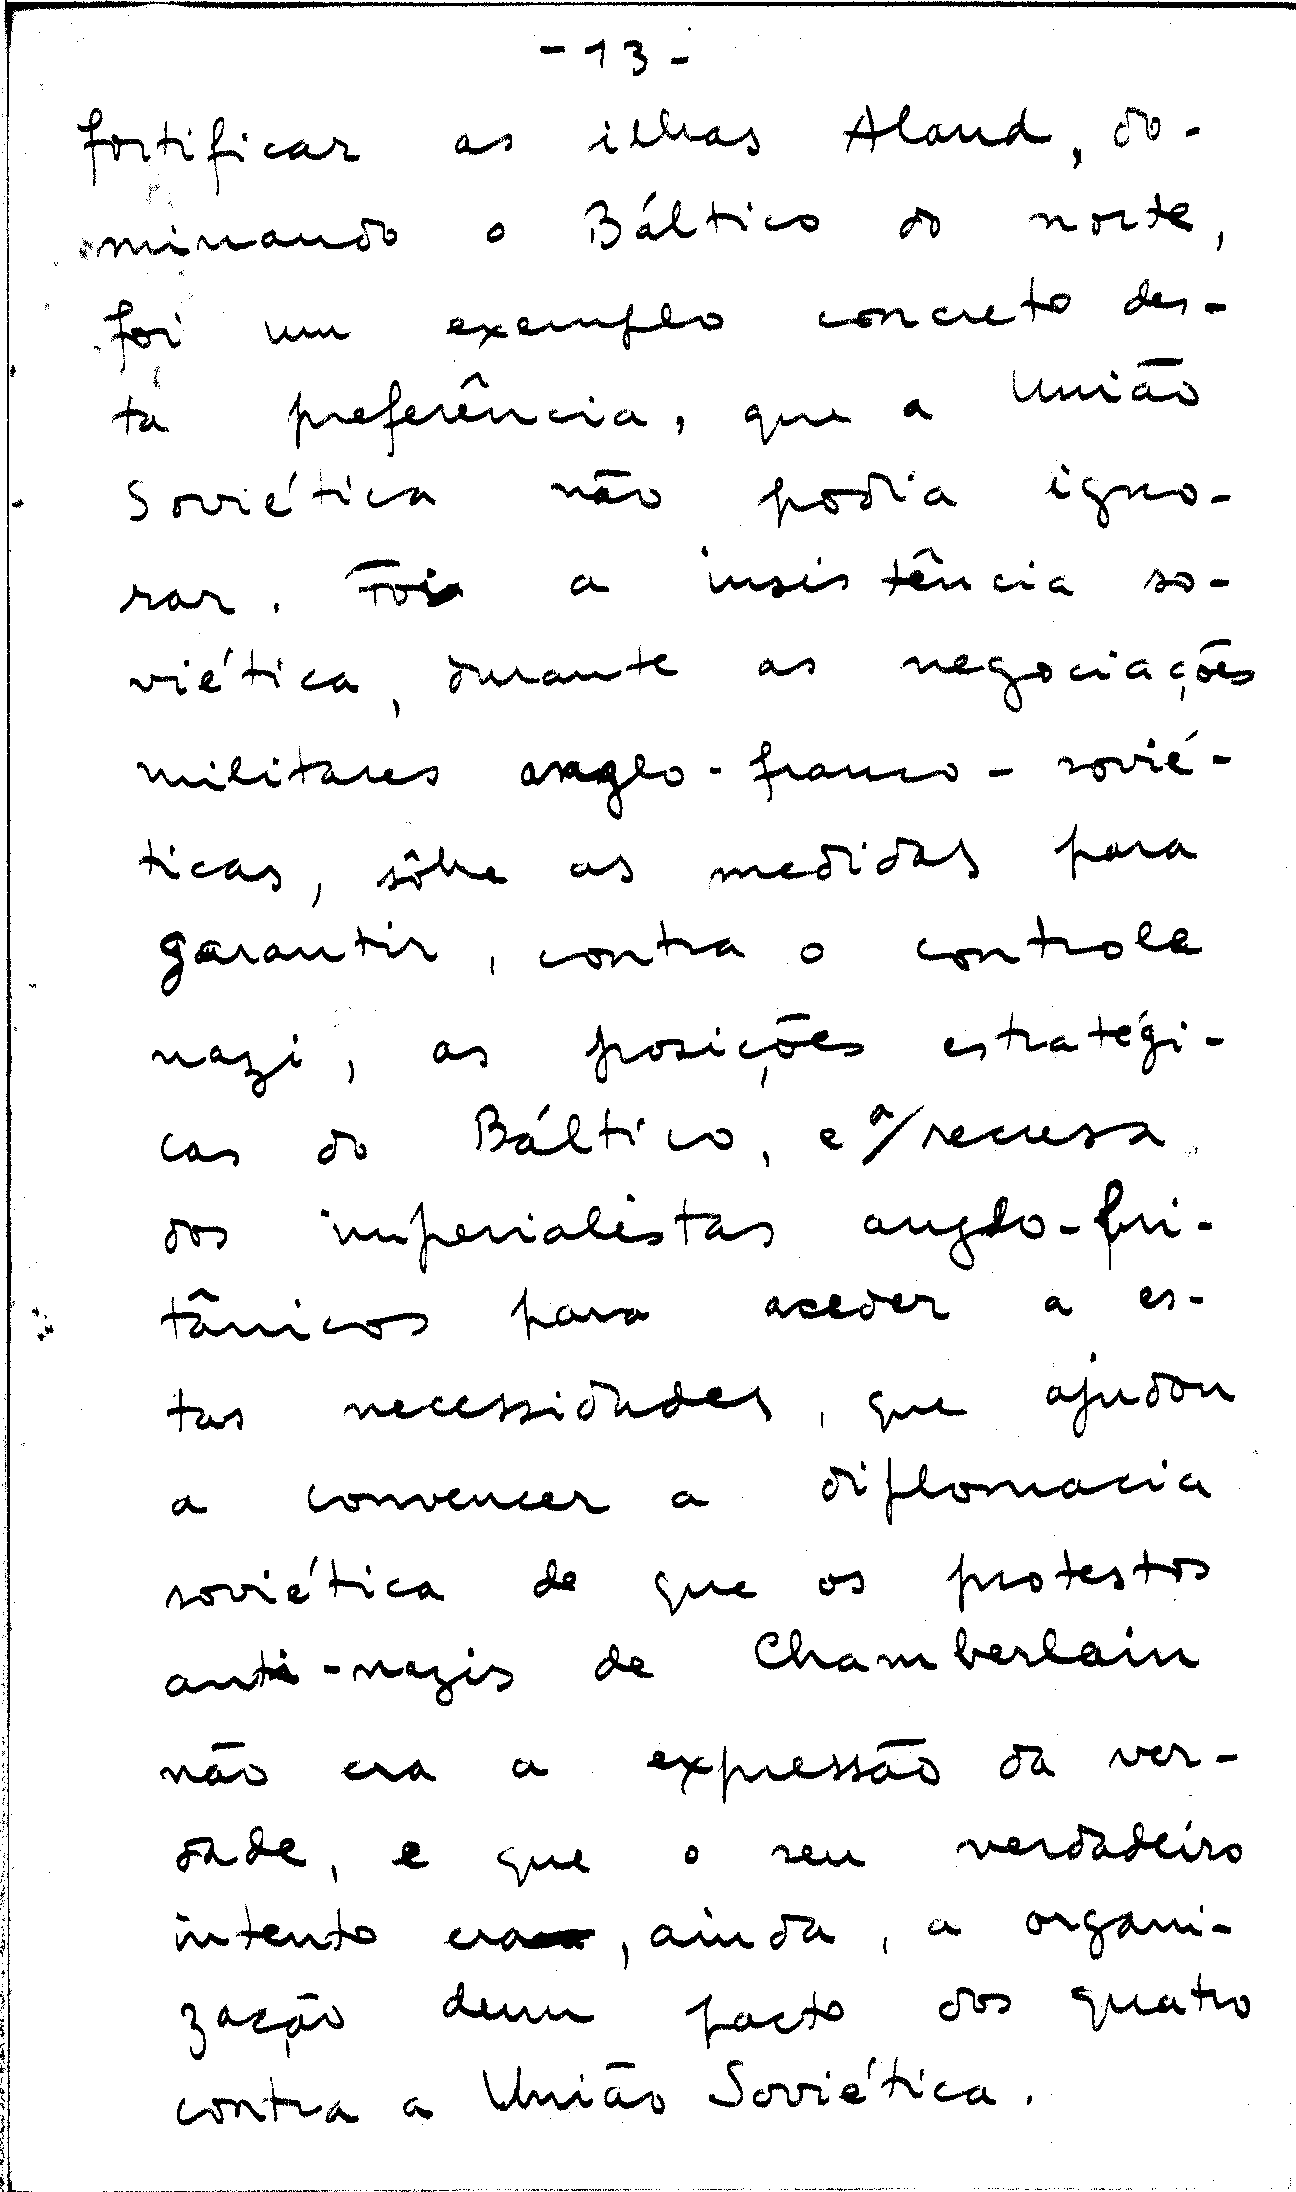 - 13 -
fortificar as ilhas Aland, do-
minando o Báltico do norte,
foi um exemplo concreto des-
ta preferência, que a União
Soviética não podia igno-
rar. Foi a insistência so-
viética, durante as negociações
militares anglo-franco-sovié-
ticas, sôbre as medidas para
garantir, contra o controle
nazi, as posições estratégi-
cas do Báltico, e a/recusa
dos imperialistas anglo-bri-
tânicos para aceder a es-
tas necessidades, que ajudou
a convencer a diplomacia
soviética de que os protestos
anti-nazis de Chamberlain
não era a expressão da ver-
dade, e que o seu verdadeiro
intento era, ainda, a organi-
zação dum pacto dos quatro
contra a União Soviética.